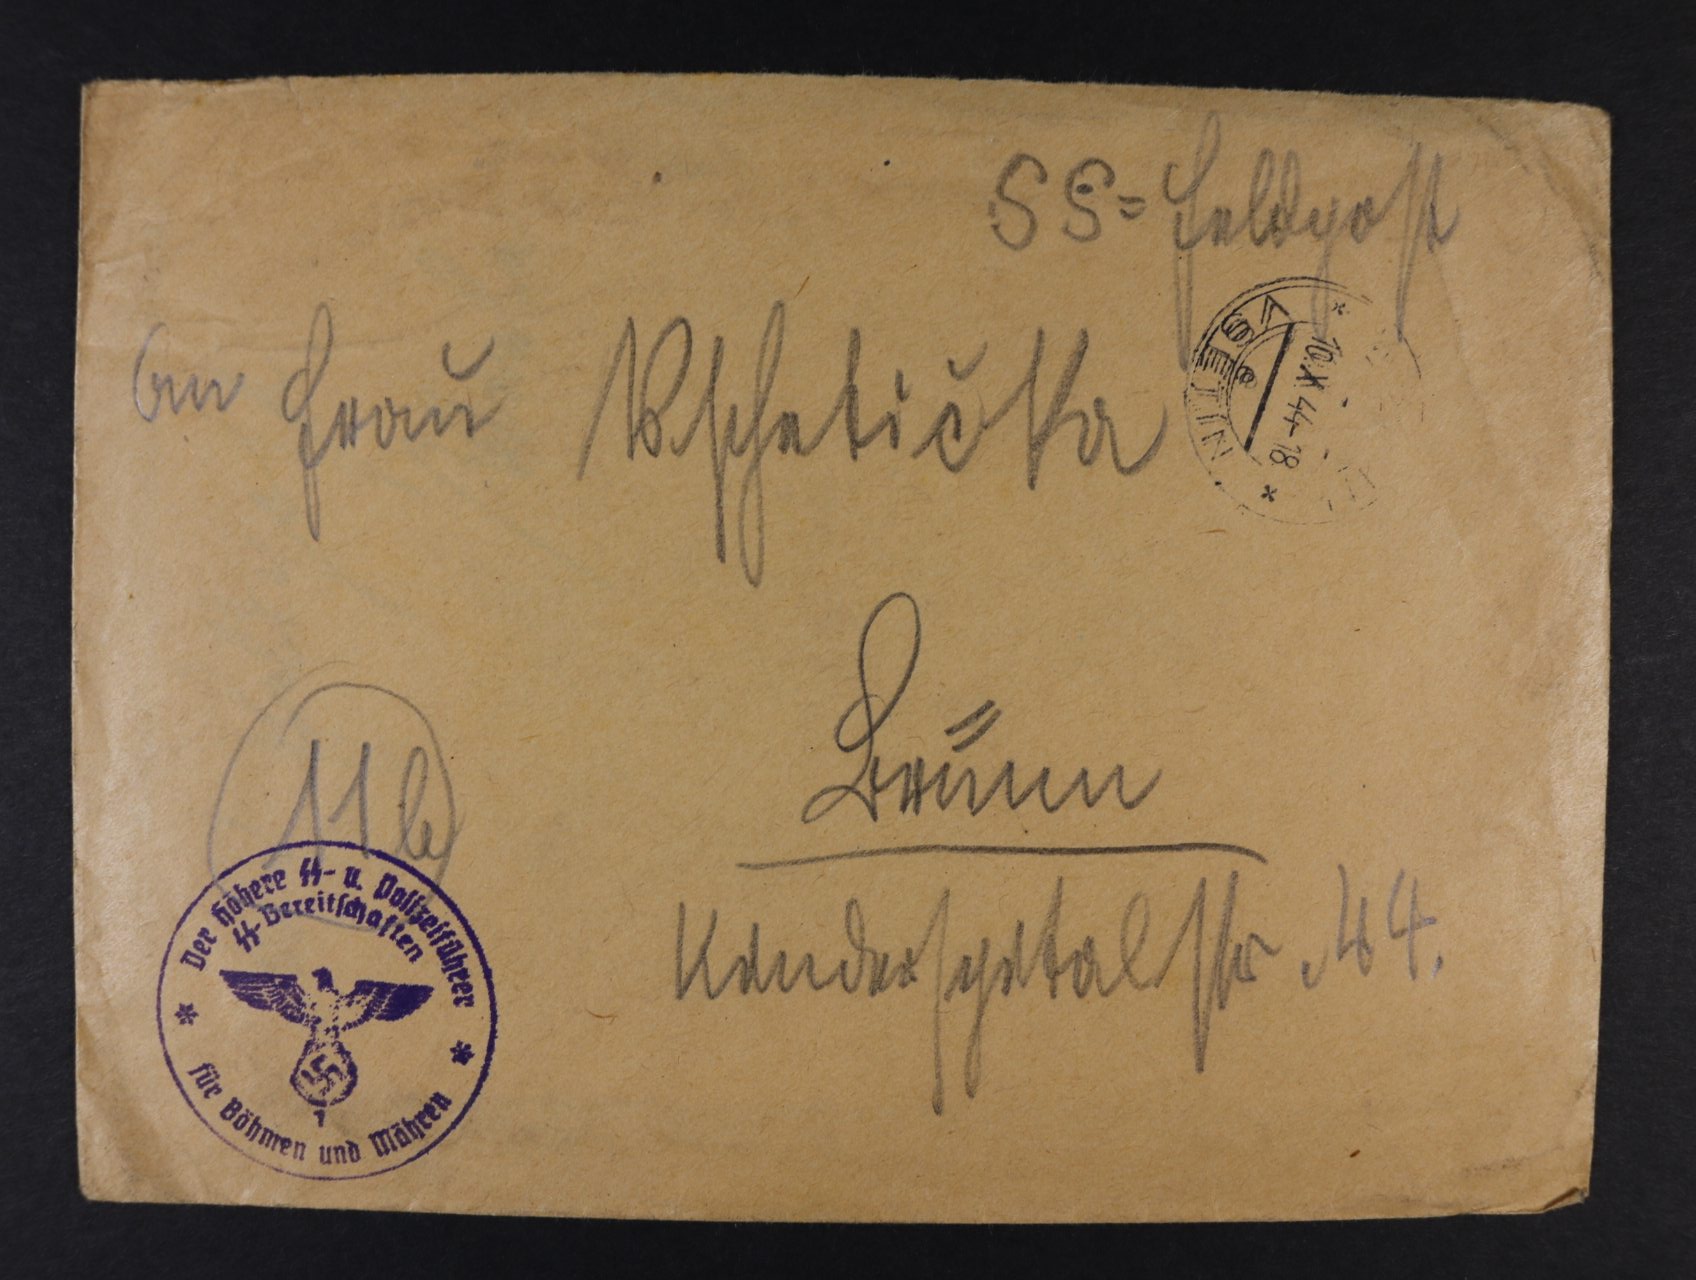 SS=Feldpost
VSETIN
* 10.X.44-18 *
e
An Frau Wschetićka
Brünn
11b
Kinderspitalstr. 44.
Der Höhere SS- u. Polizeiführer
SS-Bereitschaften
* *
1
für Böhmen und Mähren